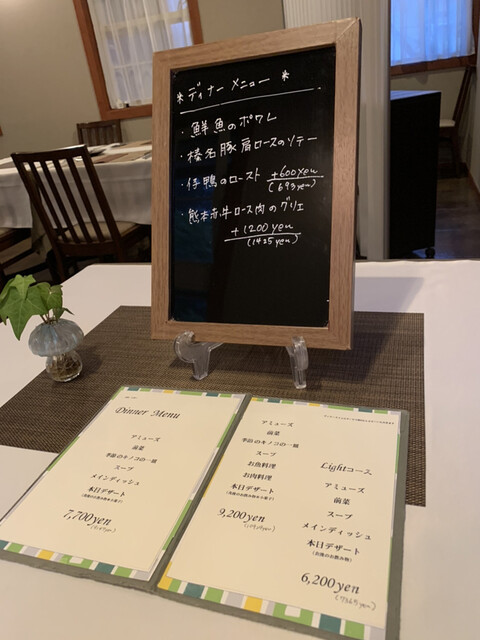 * ディナー メニュー *
・鮮魚のポワレ
・榛名豚肩ロースのソテー
・仔鴨のロースト +600yen
(693yen)
・熊本赤牛ロース肉のグリエ
+1200yen
(1425yen)
Dinner Menu
アミューズ
前菜
季節のキノコの一皿
スープ
メインディッシュ
本日デザート
(食後のお飲み物&小菓子)
7,700yen
アミューズ
前菜
季節のキノコの一皿
スープ
お魚料理
お肉料理
本日デザート
(食後のお飲み物&小菓子)
9,200yen
Lightコース
アミューズ
前菜
スープ
メインディッシュ
本日デザート
(食後のお飲み物)
6,200yen
(7365yen)